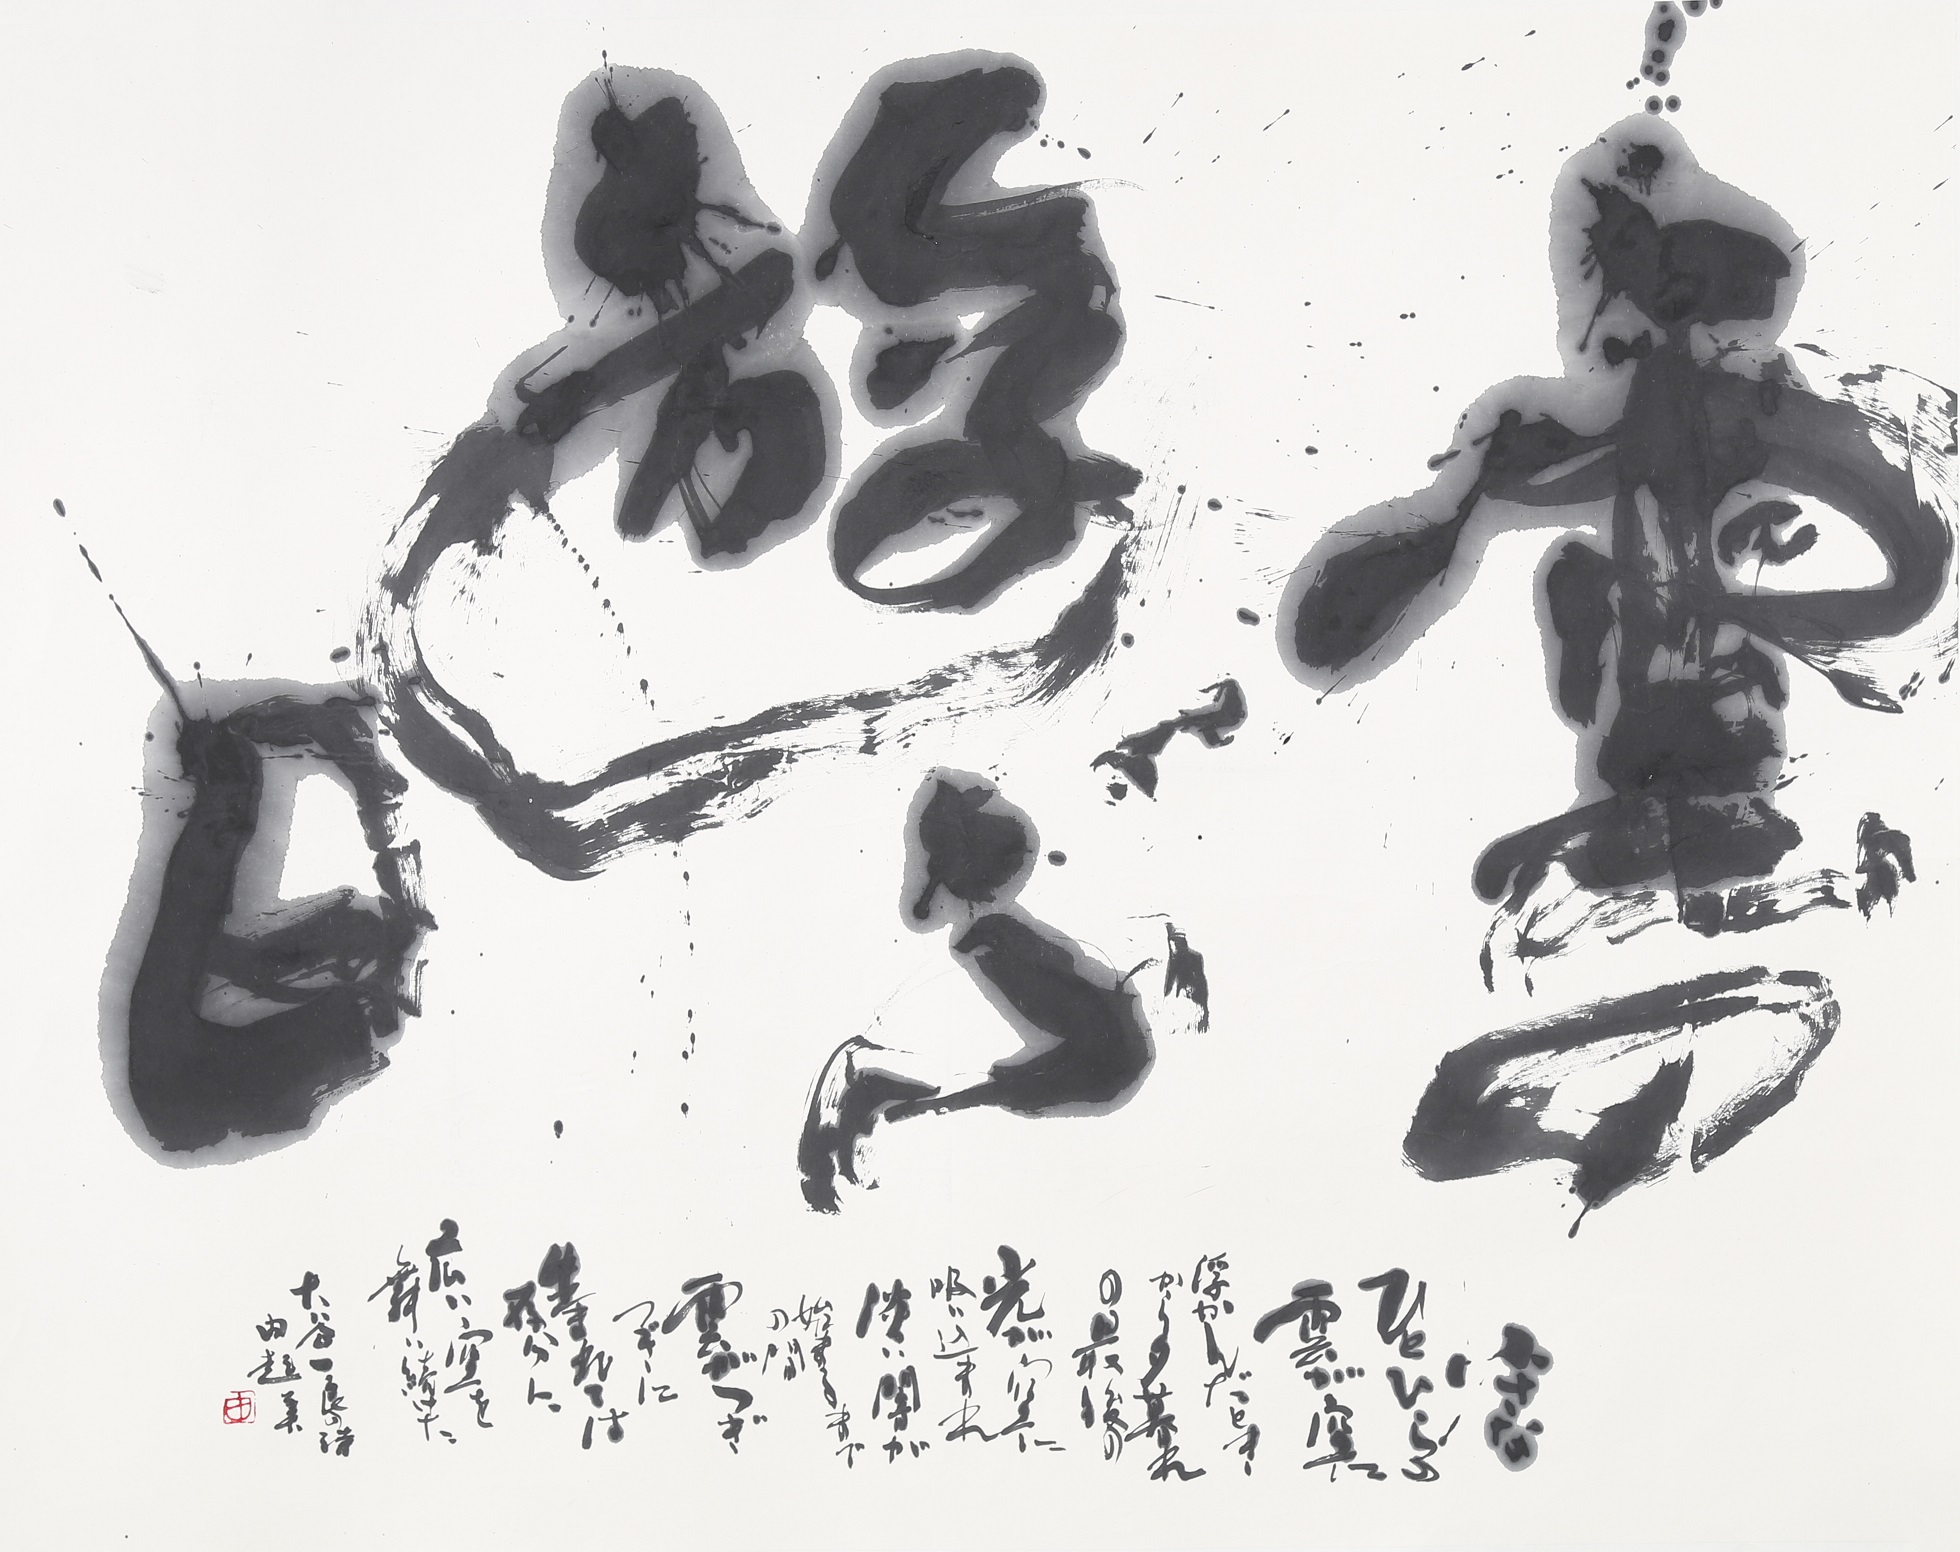 雲の
遊ぶ
日
小さな
ひとひらの
雲が空に
浮かんだとき
から夕暮れ
の最後の
光が空に
吸い込まれ
淡い闇が
始まるまで
の間
雲がつぎ
つぎに
生まれては
存分に
広い空を
舞い続けた
大谷一良の詩